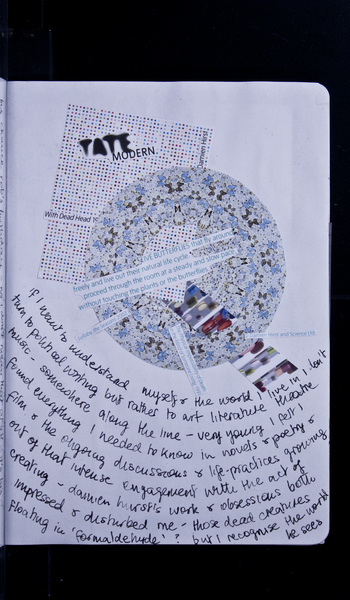 TATE
MODERN
With Dead Head
LIVE BUTTERFLIES
freely and live out their natural life cycle.
proceed through the room at a steady and slow pace
without touching the plants or the butterflies
and Science Ltd.
If I want to understand myself & the world I live in I don't
turn to political writing but rather to art literature theatre
music - somewhere along the line - very young I felt I
found everything I needed to know in novels & poetry &
film & the ongoing discussions & life-practices growing
out of that intense engagement with the act of
creating - damien hurst's work & obsessions both
impressed & disturbed me - those dead creatures
floating in 'formaldehyde' ? but I recognise the world
he sees